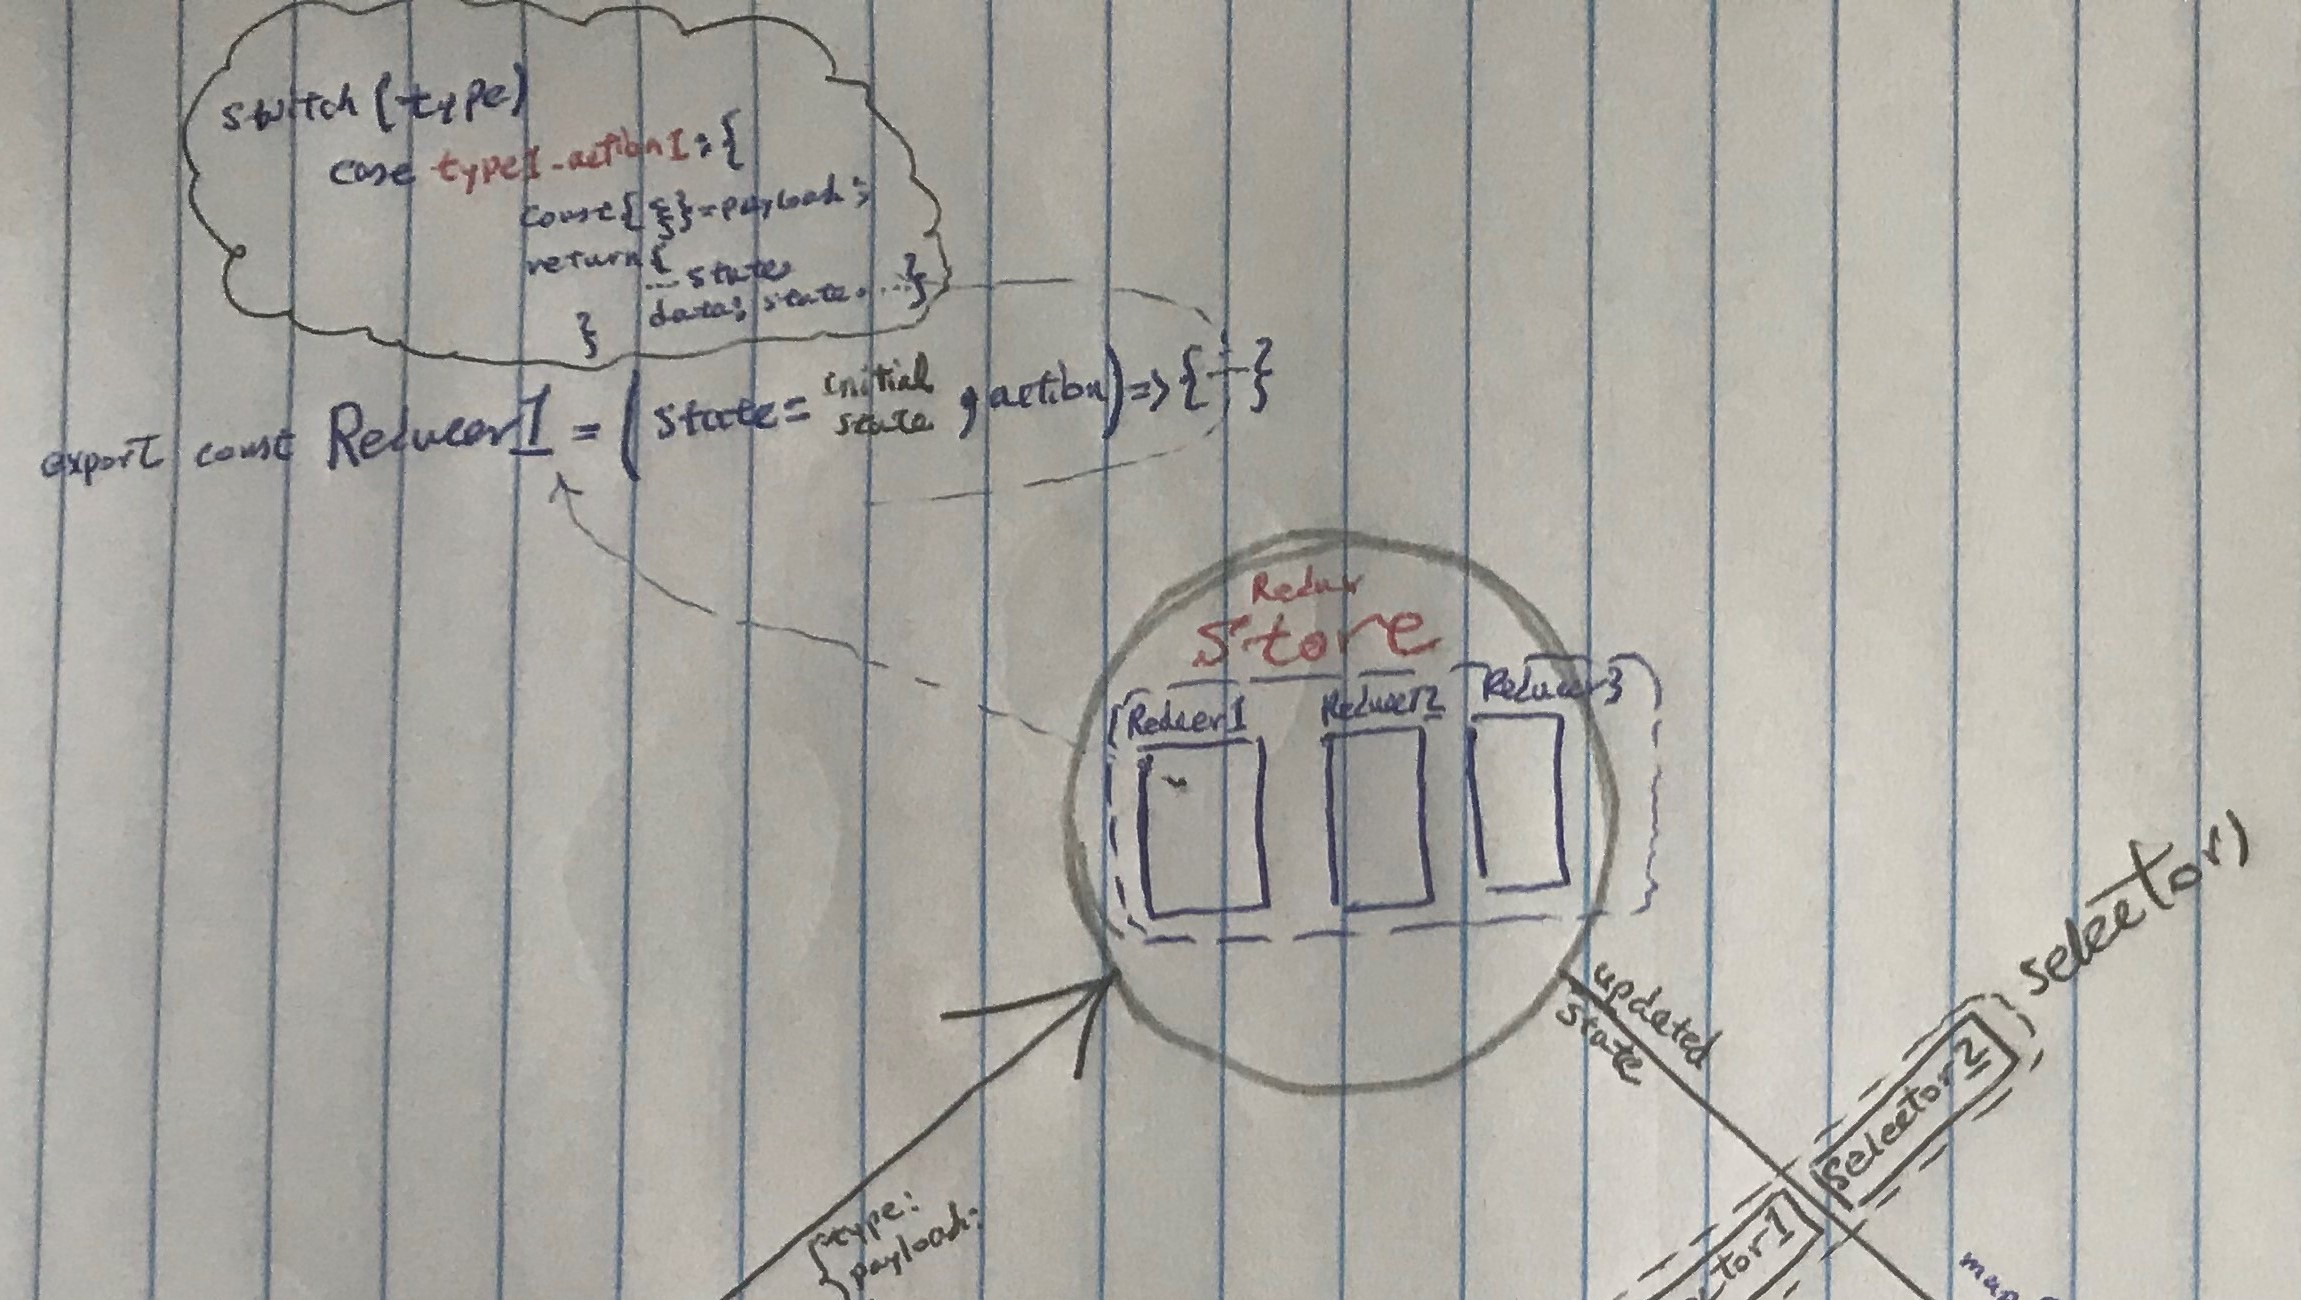 switch (type)
case type1-action1: {
const { } = payload;
return {
... state
data: state. ... }
}
export const Reducer1 = ( state = initial state , action) => { }
Redux
Store
Reducer1 Reducer2 Reducer3
updated
state
selector)
selector2
ctor1
{type:
payload: